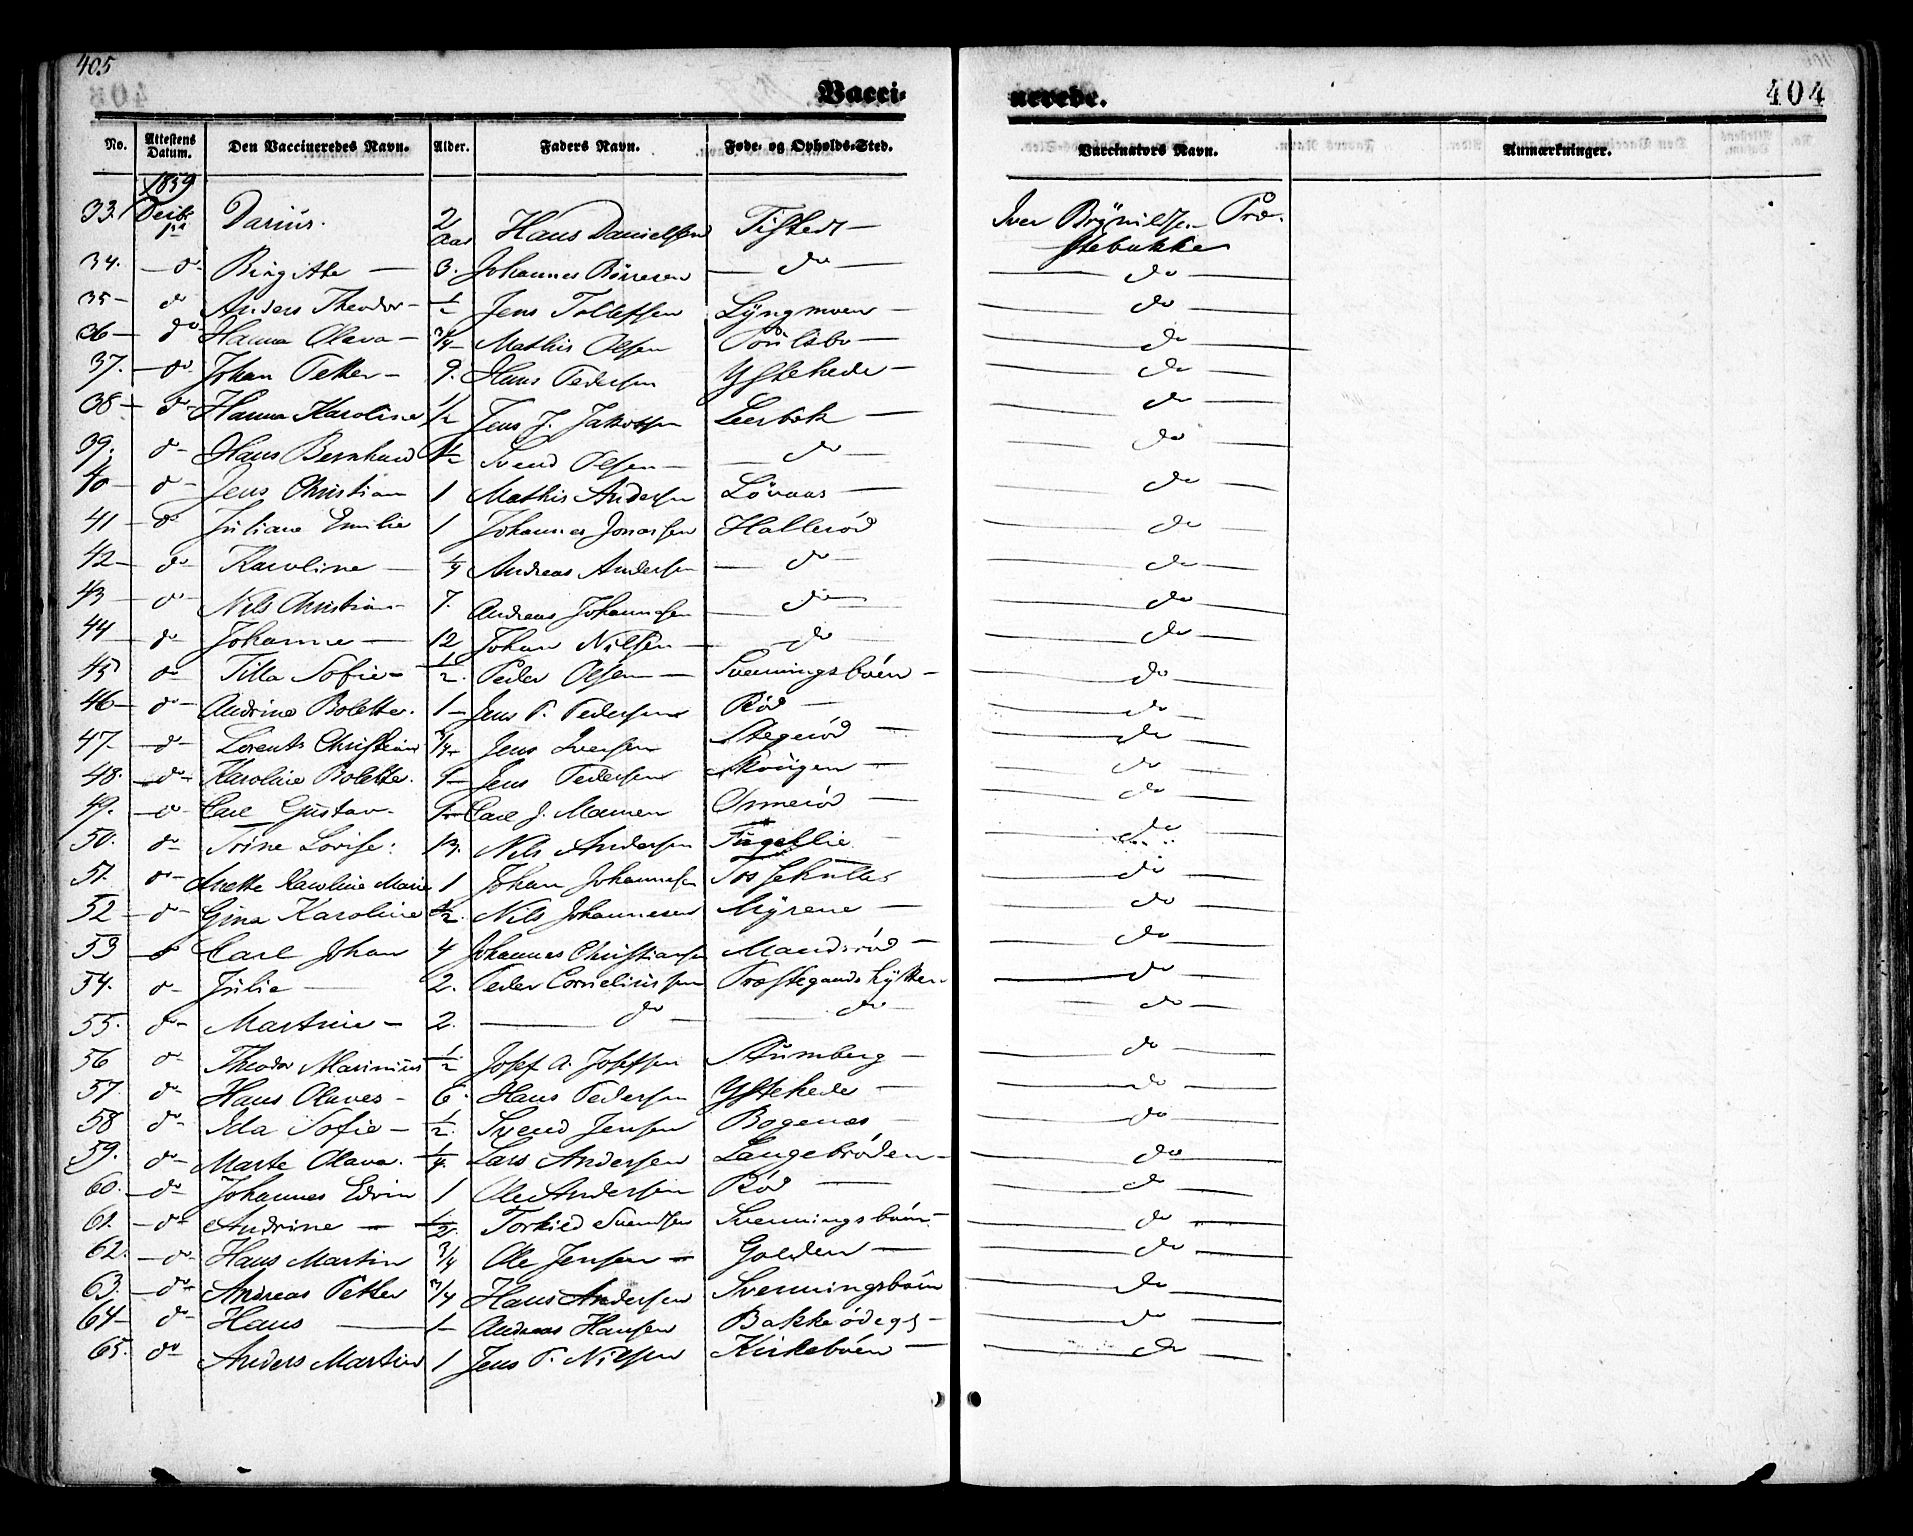 405
Vacci-
nerede.
404
No. Attestens Datum. Den Vaccineredes Navn. Alder. Faders Navn. Føde- og Opholds-Sted. Vaccinators Navn. Anmærkninger.
1859
33. Decbr 1ste Darius. 2 Aar Hans Danielsen Tistedt — Iver Brynildsen Præ-
stebakke
34. — do Birgitte — 3. Johannes Börresen — do — — do —
35 — do Anders Theodor — 1/2 Jens Tollefsen Lyngmoen — — do —
36 — do Hanna Olava — 3/4 — Mathis Olsen — — do —
37. — do Johan Petter — 9. Hans Pedersen Ystehede — — do —
38 — do Hanna Karoline 1/2 Jens J. Jakobsen Leerbek — — do —
39. do — Hans Bernhard 1/2 Svend Olsen — — do — — do —
40 — do — Jens Christian 1 Mathis Andersen Løvaas — — do —
41 — do Juliane Emilie 1 Johannes Jonassen Hallerød — do —
42 — do — Karoline — 1/4 Andreas Andersen — do — — do —
43 — do — Nils Christian — 7. Andreas Johannesen — do — — do —
44 — do Johanne — 12 Johan Nilsen — — do — do —
45 do Tilla Sofie — 1/2. Peder Olsen — Svenningsbøen — — do —
46 — do — Andrine Bolette. 1 — Jens P. Pedersen Rød — — do —
47. — do — Lorents Christian 3/4 — Jens Iversen Stegerød — — do —
48. — do — Karoline Bolette. 1 — Jens Pedersen Skougen — — do —
49. — do Carl Gustav. Carl J. Mamen Ormerød — — do —
50. do Trine Lovise. 13. Nils Andersen Fugellie — — do —
51. do — Anette Karoline Marie 1 Johan Johannesen Tossehulles — do —
52 — do — Gina Karoline 1/2. Nils Johannesen Myrene — — do —
53 — do Carl Johan 4 Johannes Christiansen Mandsrød — — do —
54. do — Julie — 2. Peder Corneliussen Præstegaards hytten — do —
55. do — Martine — 2. — do — — do — — do —
56 do — Theodor Marinius 1/2 Josef A. Josefsen Stumberg — — do —
57. do — Hans Olaves — 6. Hans Pedersen Ystehede — — do —
58 do — Ida Sofie — 1/2. Svend Jensen Bogenæs — — do —
59. do — Marte Olava. 1/4. Lars Andersen Langebrøden — — do —
60. — do — Johannes Edvin 1 Ole Andersen Rød — — do —
61. — do — Andrine — 1/2. Torkied Svendsen Svenningsbøen — do —
62. — do — Hans Martin 3/4 Ole Jensen — Golden — — do —
63. — do — Andreas Petter 3/4 Hans Andersen Svenningsbøen — do —
64 — do — Hans — 1 — Andreas Hansen Bakkerødegs — — do —
65. do — Anders Martin 1 Jens P. Nilsen Kirkebøen — — do —